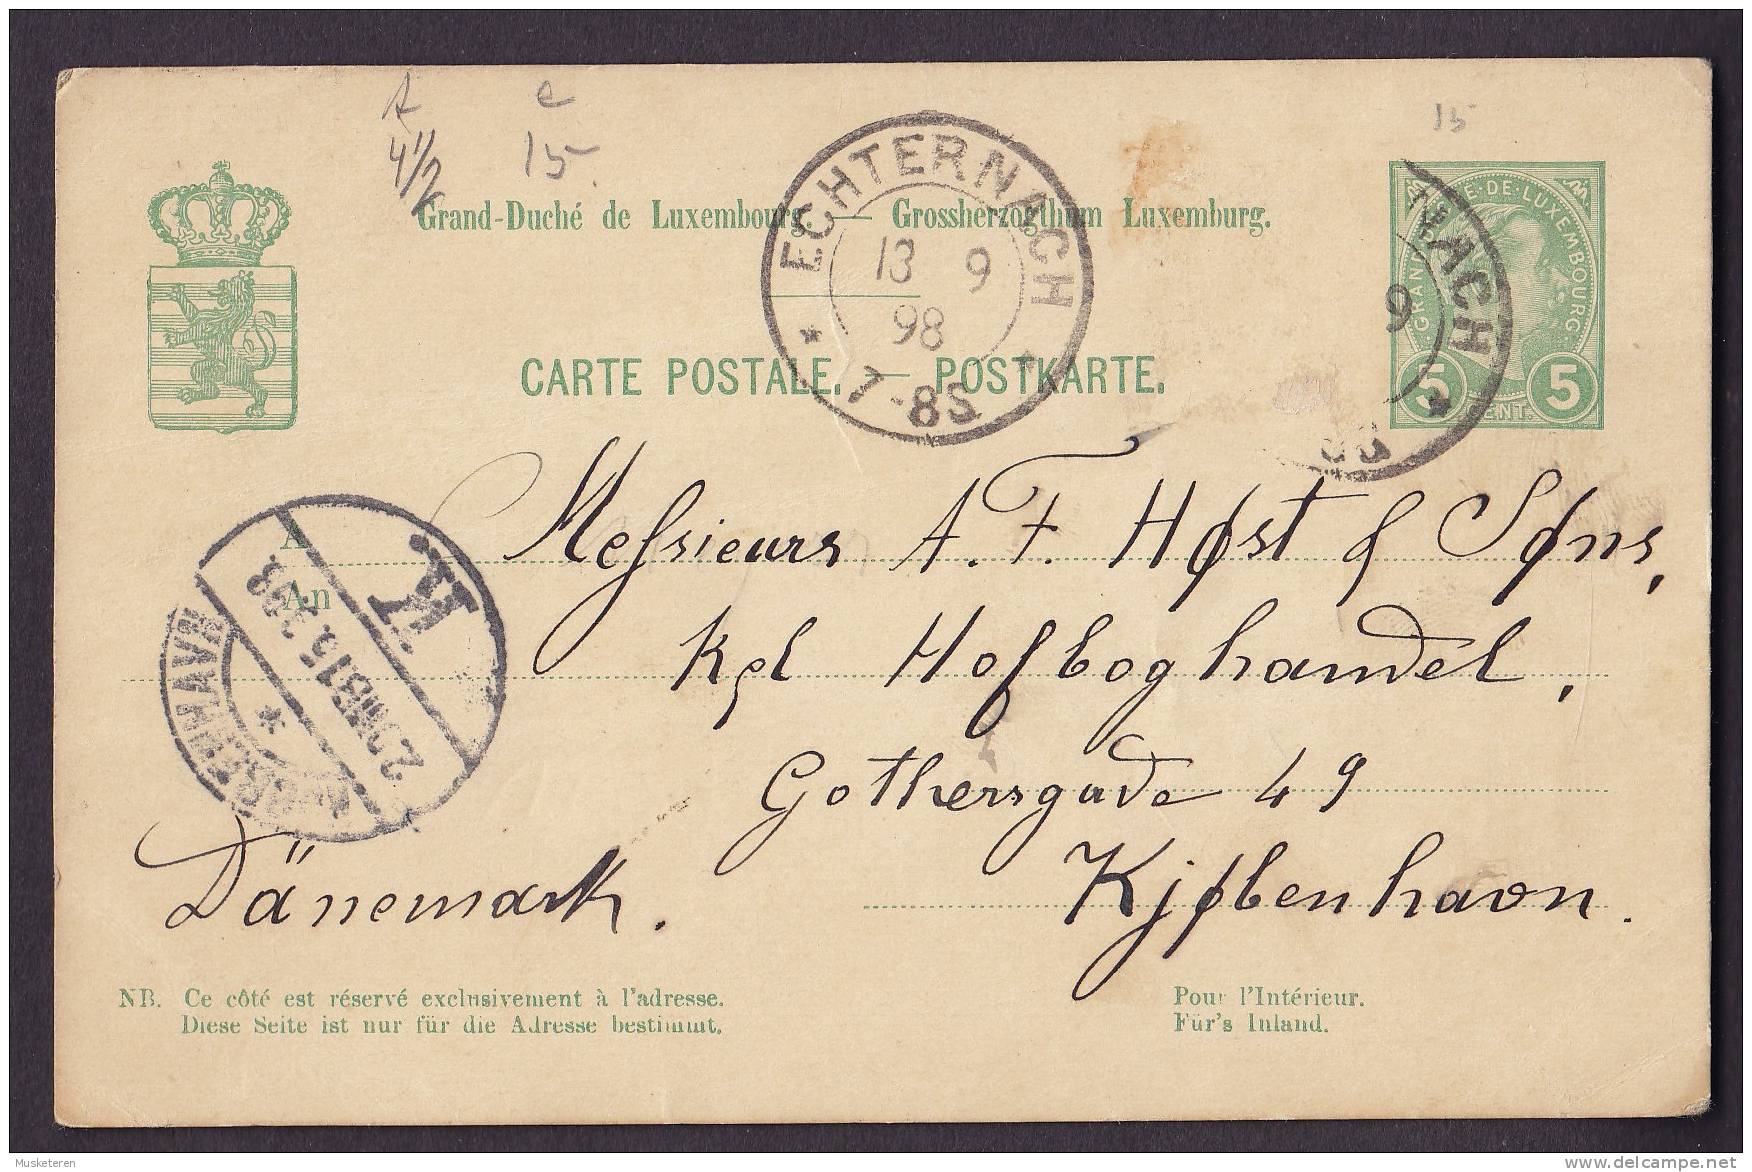 4 1/2 15
15
Grand-Duché de Luxembourg. — Grossherzogthum Luxemburg.
ECHTERNACH
13 9
98
7-8S
GRAND DUCHÉ·DE·LUXEMBOURG
5 CENT. 5
NACH
9
CARTE POSTALE. — POSTKARTE.
A
An
K.
2.OMB.15.9.98
Messieurs A. F. Høst & Søns,
Kgl Hofboghandel,
Gothersgade 49
Kjøbenhavn.
Dänemark.
NB. Ce côté est réservé exclusivement à l'adresse.
Diese Seite ist nur für die Adresse bestimmt.
Pour l'Intérieur.
Für's Inland.
Musketeren
delcampe.net